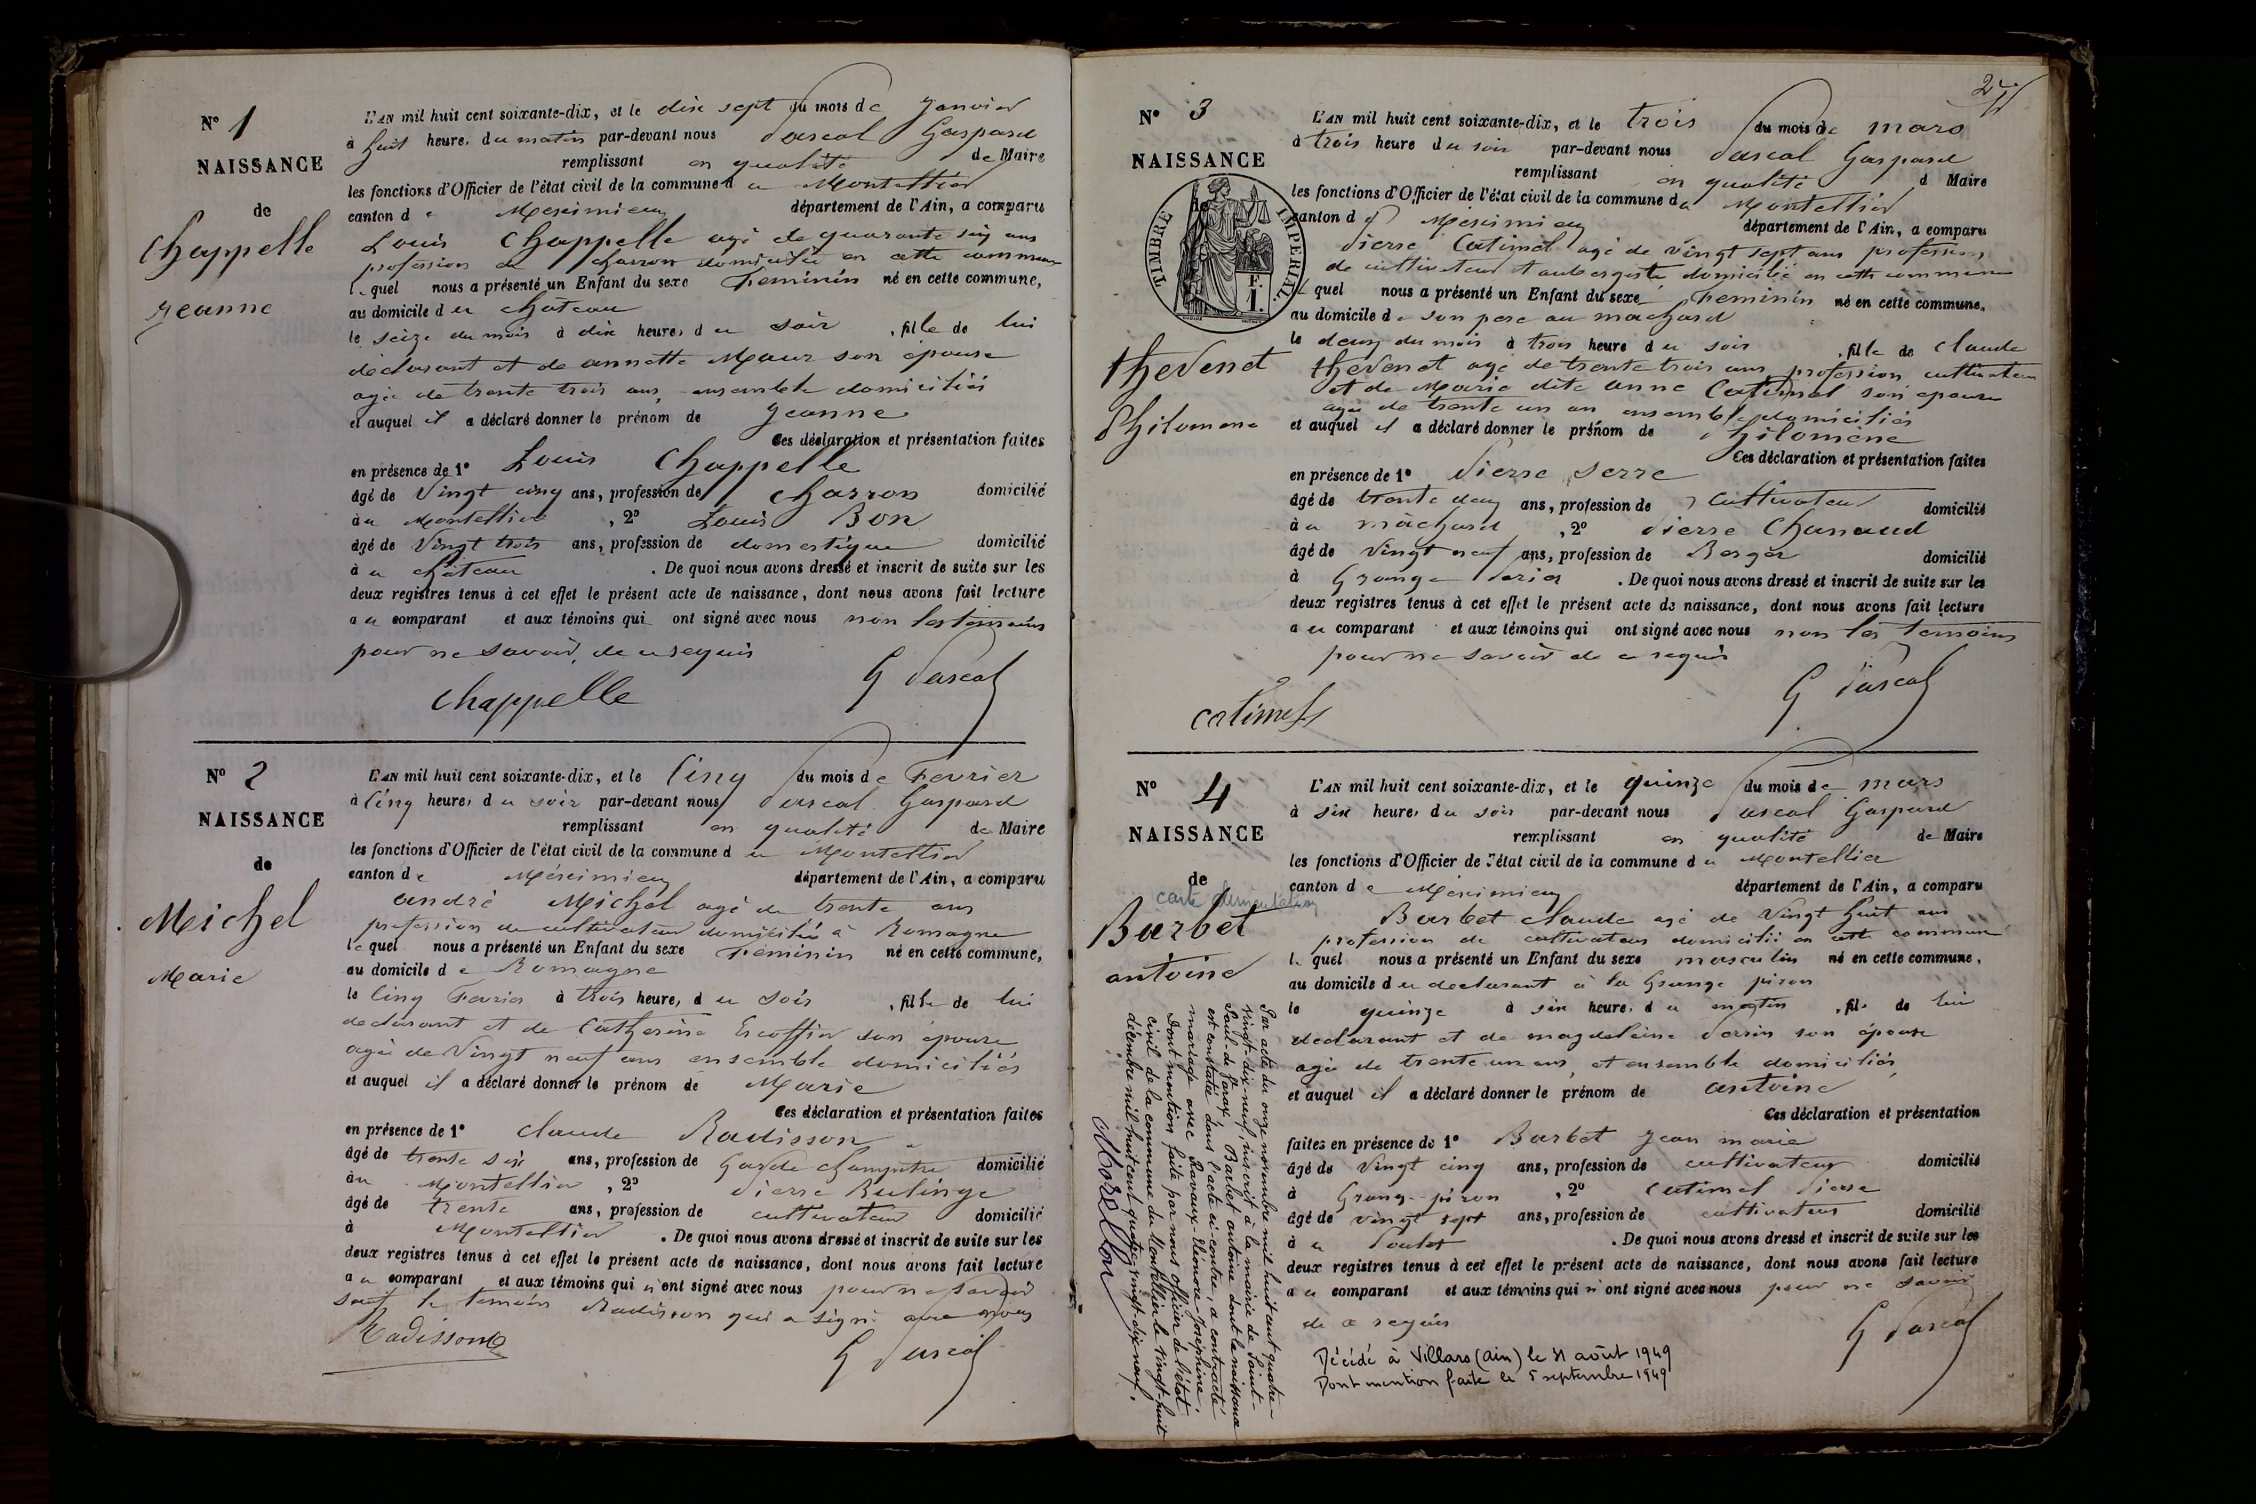 N° 1
NAISSANCE
de
Chappelle
Jeanne
L'AN mil huit cent soixante-dix, et le dix sept du mois de Janvier
à huit heures du matin par-devant nous Pascal Gaspard
remplissant en qualité de Maire
les fonctions d'Officier de l'état civil de la commune du Montellier
canton de Meximieux département de l'Ain, a comparu
Louis Chappelle agé de quarante six ans
profession de charron domicilié en cette commune
lequel nous a présenté un Enfant du sexe Feminin né en cette commune,
au domicile du chateau
le seize du mois à dix heures du soir, fille de lui
déclarant et de annette Maur son épouse
agée de trente trois ans, ensemble domiciliés
et auquel il a déclaré donner le prénom de Jeanne
Ces déclaration et présentation faites
en présence de 1° Louis Chappelle
âgé de vingt cinq ans, profession de charron domicilié
àu Montellier, 2° Louis Bon
âgé de vingt trois ans, profession de domestique domicilié
àu château. De quoi nous avons dressé et inscrit de suite sur les
deux registres tenus à cet effet le présent acte de naissance, dont nous avons fait lecture
au comparant et aux témoins qui ont signé avec nous non les temoins
pour ne savoir, de ce requis
chappelle G Pascal
N° 2
NAISSANCE
de
Michel
Marie
L'AN mil huit cent soixante-dix, et le Cinq du mois de Fevrier
à Cinq heures du soir par-devant nous Pascal Gaspard
remplissant en qualité de Maire
les fonctions d'Officier de l'état civil de la commune du Montellier
canton de Méximieux département de l'Ain, a comparu
andré Michel agé de trente ans
profession de cultivateur domicilié à Romagne
lequel nous a présenté un Enfant du sexe Feminin né en cette commune,
au domicile de Romagne
le Cinq Fevrier à trois heures du soir, fille de lui
declarant et de Catherine Escoffier son épouse
agée de vingt neuf ans ensemble domiciliés
et auquel il a déclaré donner le prénom de Marie
Ces déclaration et présentation faites
en présence de 1° claude Radisson
âgé de trente six ans, profession de Garde champetre domicilié
àu Montellier, 2° Pierre Bulinge
âgé de trente ans, profession de cultivateur domicilié
à Montellier. De quoi nous avons dressé et inscrit de suite sur les
deux registres tenus à cet effet le présent acte de naissance, dont nous avons fait lecture
au comparant et aux témoins qui n'ont signé avec nous pour ne savoir
sauf le temoin Radisson qui a signé avec nous
Radisson G Pascal
N° 3
NAISSANCE
de
TIMBRE IMPERIAL
F. 1.
thevenet
Philomene
L'AN mil huit cent soixante-dix, et le trois du mois de mars
à trois heure du soir par-devant nous Pascal Gaspard
remplissant en qualité d Maire
les fonctions d'Officier de l'état civil de la commune du Montellier
canton de Méximieux département de l'Ain, a comparu
Pierre Catimel agé de vingt sept ans profession
de cultivateur et aubergiste domicilié en cette commune
lequel nous a présenté un Enfant du sexe Feminin né en cette commune,
au domicile de son pere au machard
le deux du mois à trois heure du soir, fille de claude
thevenet agé de trente trois ans profession cultivateur
et de Marie dite anne Catimel son epouse
agée de trente un an ensemble domiciliés
et auquel il a déclaré donner le prénom de Philomène
Ces déclaration et présentation faites
en présence de 1° Pierre serre
âgé de trente deux ans, profession de Cultivateur domicilié
àu machard, 2° Pierre Chanaud
âgé de vingt neuf ans, profession de Berger domicilié
à Grange. De quoi nous avons dressé et inscrit de suite sur les
deux registres tenus à cet effet le présent acte de naissance, dont nous avons fait lecture
au comparant et aux témoins qui ont signé avec nous non les temoins
pour ne savoir de ce requis
catimel G Pascal
N° 4
NAISSANCE
de
carte alimentation
Barbet
antoine
L'AN mil huit cent soixante-dix, et le quinze du mois de mars
à six heures du soir par-devant nous Pascal Gaspard
remplissant en qualité de Maire
les fonctions d'Officier de l'état civil de la commune du Montellier
canton de Méximieux département de l'Ain, a comparu
Barbet claude agé de vingt huit ans
profession de cultivateur domicilié en cette commune
lequel nous a présenté un Enfant du sexe masculin né en cette commune,
au domicile du declarant à la Grange piron
le quinze à six heures du matin, fils de lui
declarant et de magdeleine Persin son épouse
agée de trente un ans, et ensemble domiciliés
et auquel il a déclaré donner le prénom de antoine
Ces déclaration et présentation
faites en présence de 1° Barbet Jean marie
âgé de vingt cinq ans, profession de cultivateur domicilié
à Grange piron, 2° Catimel Pierre
âgé de vingt sept ans, profession de cultivateur domicilié
à u. De quoi nous avons dressé et inscrit de suite sur les
deux registres tenus à cet effet le présent acte de naissance, dont nous avons fait lecture
au comparant et aux témoins qui n'ont signé avec nous pour ne savoir
de ce requis
G Pascal
Décédé à Villars (Ain) le 31 août 1949
Dont mention faite le 5 septembre 1949
Par acte du onze novembre mil huit cent quatre-
vingt-dix-neuf, inscrit à la mairie de Saint-
Paul-de-Varax, Barbet antoine dont la naissance
est constatée dans l'acte ci-contre, a contracté
mariage avec Ravaux-Eléonore-Joséphine.
Dont mention faite par nous officier de l'état
civil de la commune du Montellier le vingt-huit
décembre mil huit cent quatre-vingt-dix-neuf.